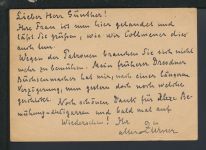 Lieber Herr Günther!
Ihre Frau ist nun hier gelandet und
läßt Sie grüßen, wie wir Vollwerner dies
auch tun.
Wegen der Patronen brauchen Sie sich nicht
mehr zu bemühen. Mein früherer Dresdner
Büchsenmacher hat mir, nach einer längeren
Verzögerung, nun gestern doch noch welche
geschickt. Noch schönen Dank für Ihre Be-
mühung und bald mal auf
Wiedersehen! Ihr